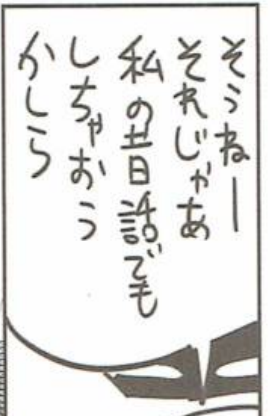 そうねー
それじゃあ
私の昔話でも
しちゃおう
かしら